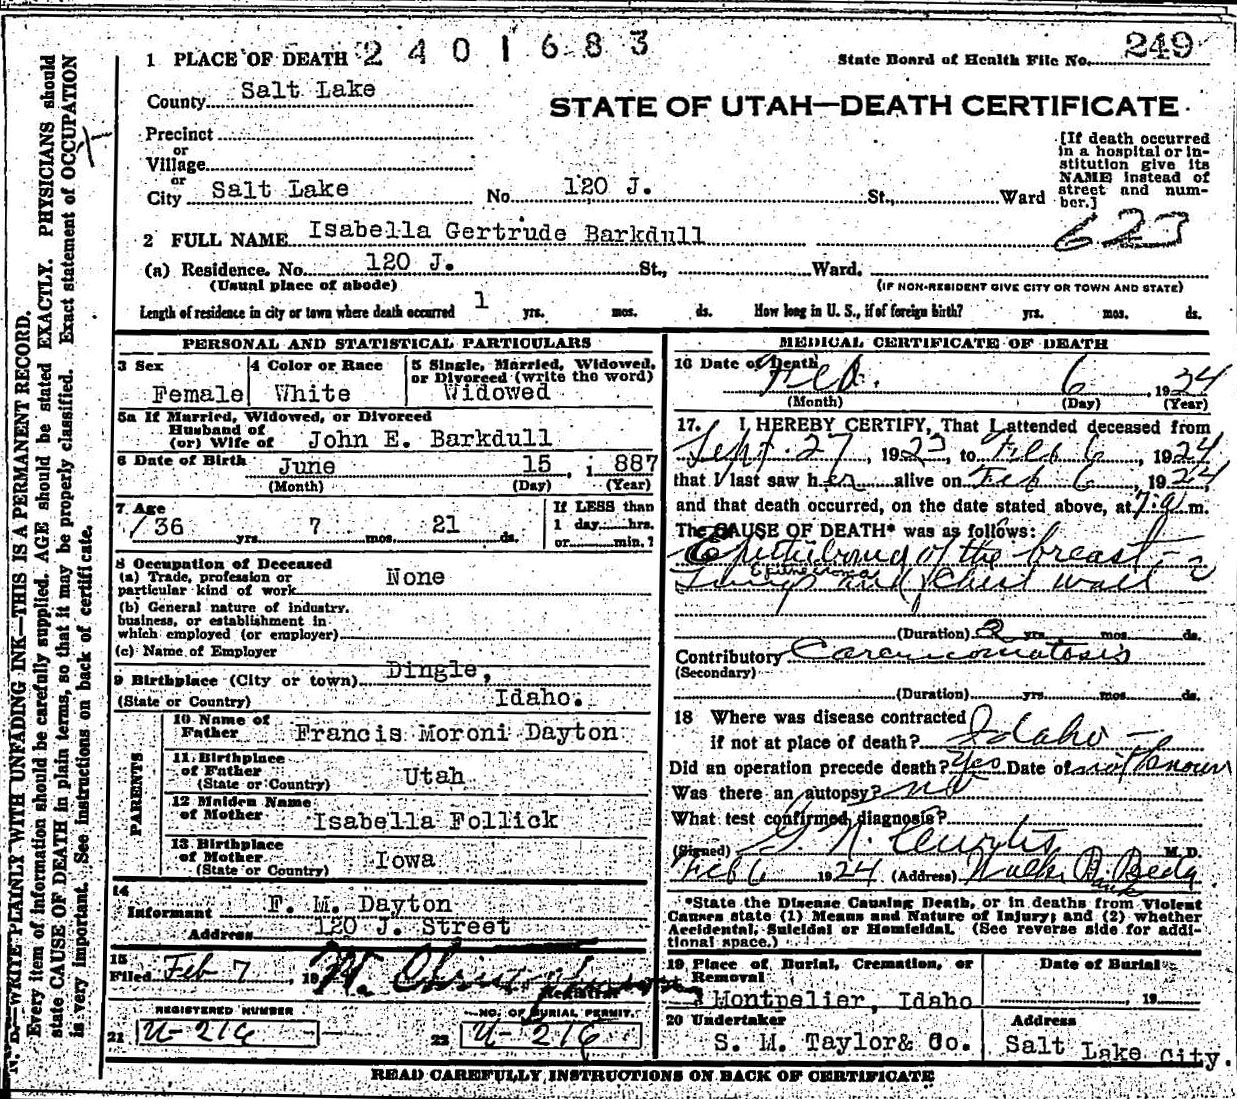 1 PLACE OF DEATH 2 4 0 1 6 8 3
State Board of Health File No. 249
County Salt Lake
STATE OF UTAH—DEATH CERTIFICATE
Precinct
or
Village
or
City Salt Lake No. 120 J. St., Ward
[If death occurred
in a hospital or in-
stitution give its
NAME instead of
street and num-
ber.]
623
2 FULL NAME Isabella Gertrude Barkdull
(a) Residence. No. 120 J. St., Ward.
(Usual place of abode) (IF NON-RESIDENT GIVE CITY OR TOWN AND STATE)
Length of residence in city or town where death occurred 1 yrs. mos. ds. How long in U. S., if of foreign birth? yrs. mos. ds.
PERSONAL AND STATISTICAL PARTICULARS
3 Sex Female
4 Color or Race White
5 Single, Married, Widowed,
or Divorced (write the word)
Widowed
5a If Married, Widowed, or Divorced
Husband of
(or) Wife of John E. Barkdull
6 Date of Birth June 15, 1887
(Month) (Day) (Year)
7 Age
36 yrs. 7 mos. 21 ds.
If LESS than
1 day, hrs.
or min.?
8 Occupation of Deceased
(a) Trade, profession or
particular kind of work None
(b) General nature of industry,
business, or establishment in
which employed (or employer)
(c) Name of Employer
9 Birthplace (City or town) Dingle,
(State or Country) Idaho.
PARENTS
10 Name of
Father Francis Moroni Dayton
11 Birthplace
of Father
(State or Country) Utah
12 Maiden Name
of Mother Isabella Follick
13 Birthplace
of Mother
(State or Country) Iowa
14
Informant F. M. Dayton
Address 120 J. Street
15
Filed Feb 7, 1924 M. Christopherson
Registrar
REGISTERED NUMBER
21 U-216
NO. OF BURIAL PERMIT.
22 U-216
MEDICAL CERTIFICATE OF DEATH
16 Date of Death Feb. 6 1924
(Month) (Day) (Year)
17. I HEREBY CERTIFY, That I attended deceased from
Sept. 27, 1923, to Feb 6, 1924
that I last saw her alive on Feb 6, 1924,
and that death occurred, on the date stated above, at 7:a m.
The CAUSE OF DEATH* was as follows:
Epithelioma of the breast -
Lungs and chest wall 2
(Duration) 2 yrs. mos. ds.
Contributory Carcinomatosis
(Secondary)
(Duration) yrs. mos. ds.
18 Where was disease contracted
if not at place of death? Idaho -
Did an operation precede death? Yes Date of not known
Was there an autopsy? no
What test confirmed diagnosis?
(Signed) G. N. Curtis M. D.
Feb 6 1924 (Address) Walker Bank Bldg
*State the Disease Causing Death, or in deaths from Violent
Causes state (1) Means and Nature of Injury; and (2) whether
Accidental, Suicidal or Homicidal. (See reverse side for addi-
tional space.)
19 Place of Burial, Cremation, or
Removal
Montpelier, Idaho
Date of Burial
, 19
20 Undertaker
S. M. Taylor & Co.
Address
Salt Lake City.
READ CAREFULLY INSTRUCTIONS ON BACK OF CERTIFICATE
N. B.—WRITE PLAINLY WITH UNFADING INK—THIS IS A PERMANENT RECORD.
Every item of information should be carefully supplied. AGE should be stated EXACTLY. PHYSICIANS should
state CAUSE OF DEATH in plain terms, so that it may be properly classified. Exact statement of OCCUPATION
is very important. See instructions on back of certificate.